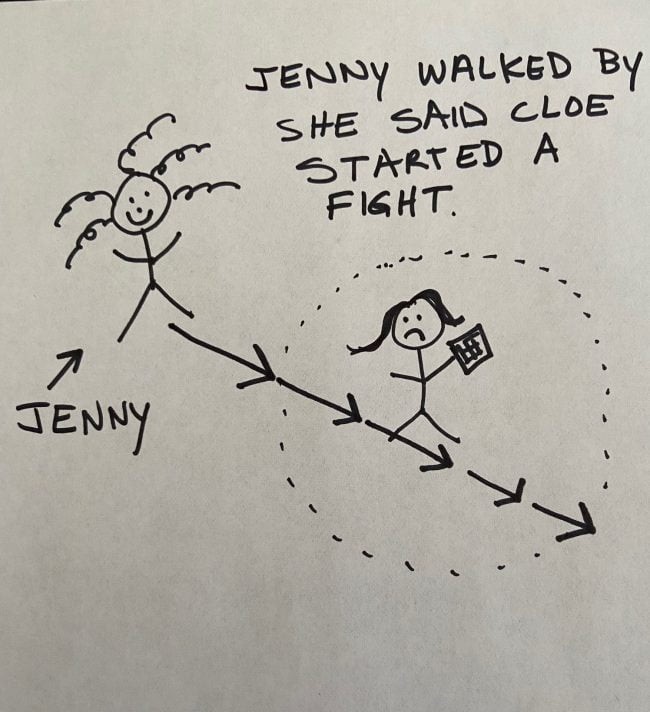 JENNY WALKED BY
SHE SAID CLOE
STARTED A
FIGHT.
JENNY